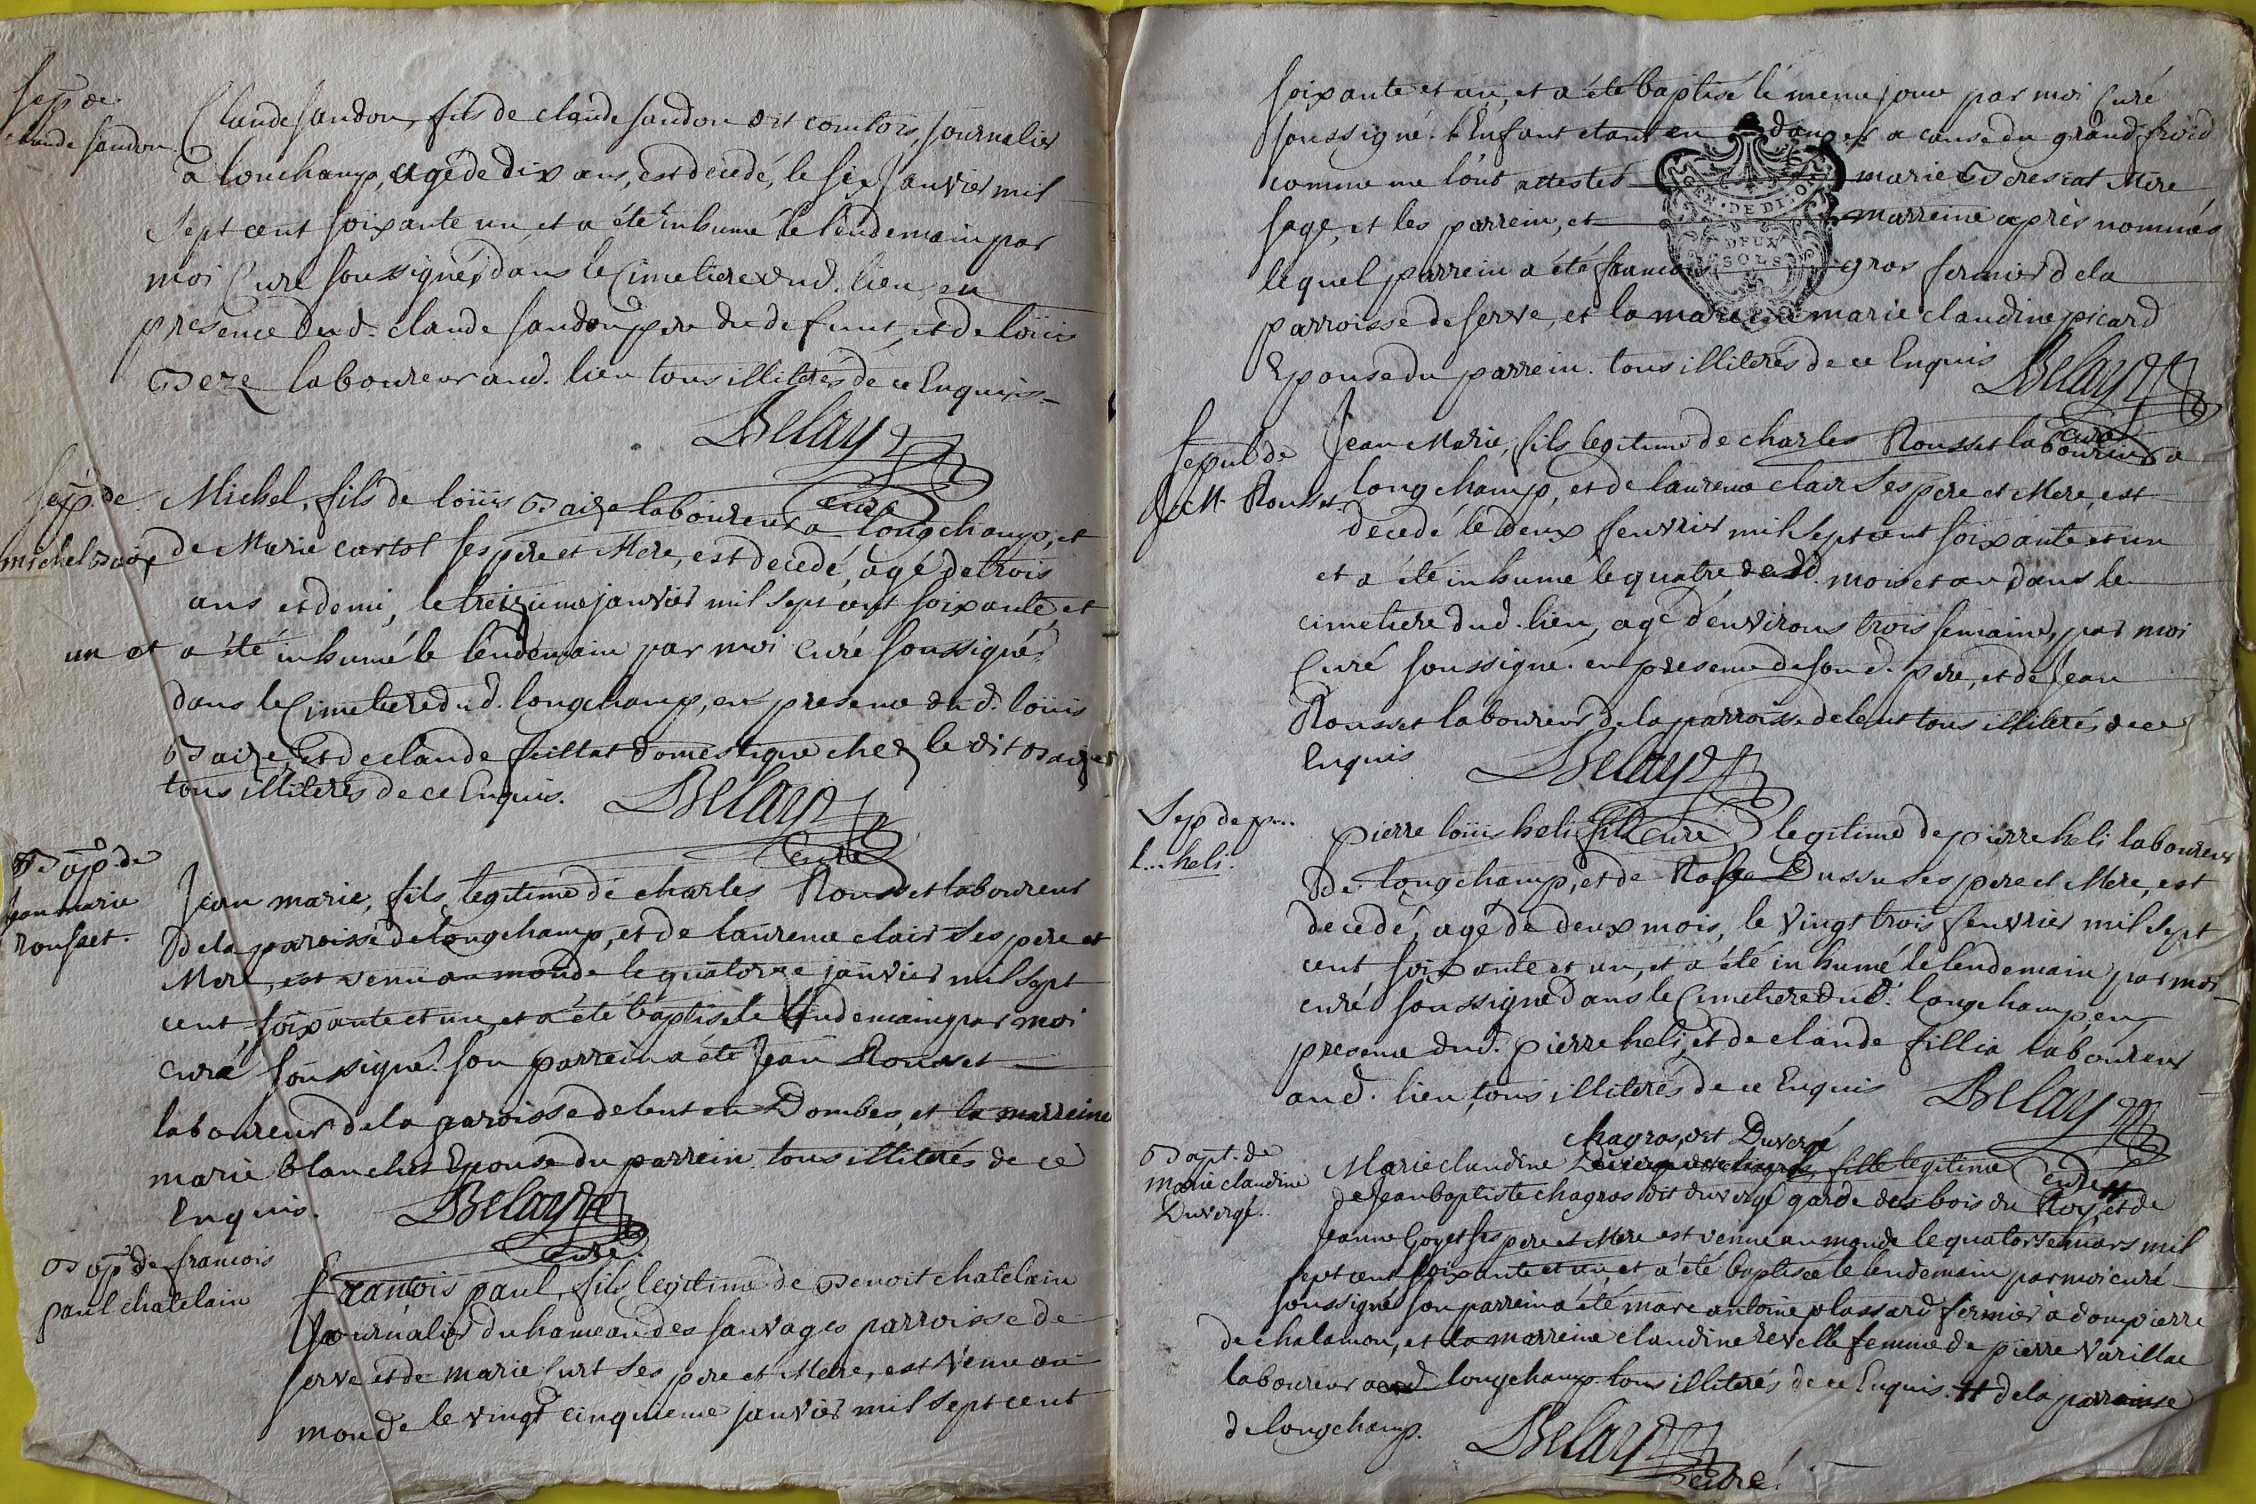 Sep. de
claude sandon.
Claude sandon, fils de claude sandon dit comtois, journalier
a lonchamp, agé de dix ans, est decedé, le six janvier mil
sept cent soixante un, et a été inhumé le lendemain par
moi Curé soussigné, dans le Cimetiere dud. lieu, en
presence dud. claude sandon pere du defunt, et de loüis
Beze laboureur aud. lieu tous illiterés de ce Enquis.
Belay
curé
Sep. de
michel Baize
Michel, fils de loüis Baize laboureur a longchamp, et
de Marie cartol ses pere et Mere, est decedé, agé de trois
ans et demi, le treizieme janvier mil sept cent soixante, et
un et a été inhumé le lendemain par moi curé soussigné
dans le Cimetiere dud. longchamp, en presence dud. loüis
Baize, Et de claude feillat domestique chez le dit Baize
tous illiterés de ce Enquis.
Belay
Curé
Bap. de
jean marie
rousset.
Jean marie, fils legitime de charles Rousset laboureur
de la paroisse de longchamp, et de laurence clair ses pere et
Mere, est venu au monde le quatorze janvier mil sept
cent soixante et un, et a été baptisé le lendemain par moi
curé soussigné. son parrein a été Jean Rousset
laboureur de la paroisse de lent en Dombes, et la marreine
marie blanchet Epouse du parrein. tous illiterés de ce
Enquis.
Belay
curé.
Bap. de francois
paul chatelain
francois paul, fils legitime de Benoit chatelain
Journalier du hameau des sauvages parroisse de
serve et de marie Curt ses pere et Mere, est venu au
monde le vingt cinquieme janvier mil sept cent
soixante et un, et a été baptisé le meme jour par moi Curé
soussigné. l'Enfant etant en danger a cause du grand froid
comme me l'ont attestés marie Mere
sage, et les parrein, et marreine après nommés
GEN. DE DIJON
DEUX
SOLS
lequel parrein a été francois gros fermier de la
parroisse de serve, et la marreine marie claudine picard
Epouse du parrein. tous illiterés de ce Enquis
Belay
curé
Sepul. de
J. M. Rousset.
Jean Marie, fils legitime de charles Rousset laboureur a
longchamp, et de laurence clair ses pere et Mere, est
decedé le deux fevrier mil sept cent soixante et un
et a été inhumé le quatre dud. mois et an dans le
cimetiere dud. lieu, agé d'environs trois semaines, par moi
Curé soussigné. en presence de son d. pere, et de Jean
Rousset laboureur de la parroisse de lent tous illiterés de ce
Enquis
Belay
Curé
Sep. de p...
l... heli.
Pierre loüis heli fils legitime de pierre heli laboureur
de longchamp, et de Dussu ses pere et Mere, est
decedé, agé de deux mois, le vingt trois fevrier mil sept
cent soixante et un, et a été inhumé le lendemain par moi
curé soussigné dans le Cimetiere dud. longchamp, en
presence dud. pierre heli, et de claude fillia laboureur
aud. lieu, tous illiterés de ce Enquis
Belay
curé
Bapt. de
marie claudine
Duvergé.
chagros dit Duvergé
Marie claudine fille legitime
de Jean baptiste chagros dit duvergé garde des bois du Roy, et de
jeanne Goyet ses pere et Mere est venue au monde le quatorze mars mil
sept cent soixante et un, et a été baptisée le lendemain par moi curé
soussigné son parrein a été marc antoine plassard fermier à dompierre
de chalamon, et la marreine claudine revelle femme de pierre Varillac
laboureur aud. longchamp. tous illiterés de ce Enquis. # de la parroisse
de longchamp.
Belay
curé.